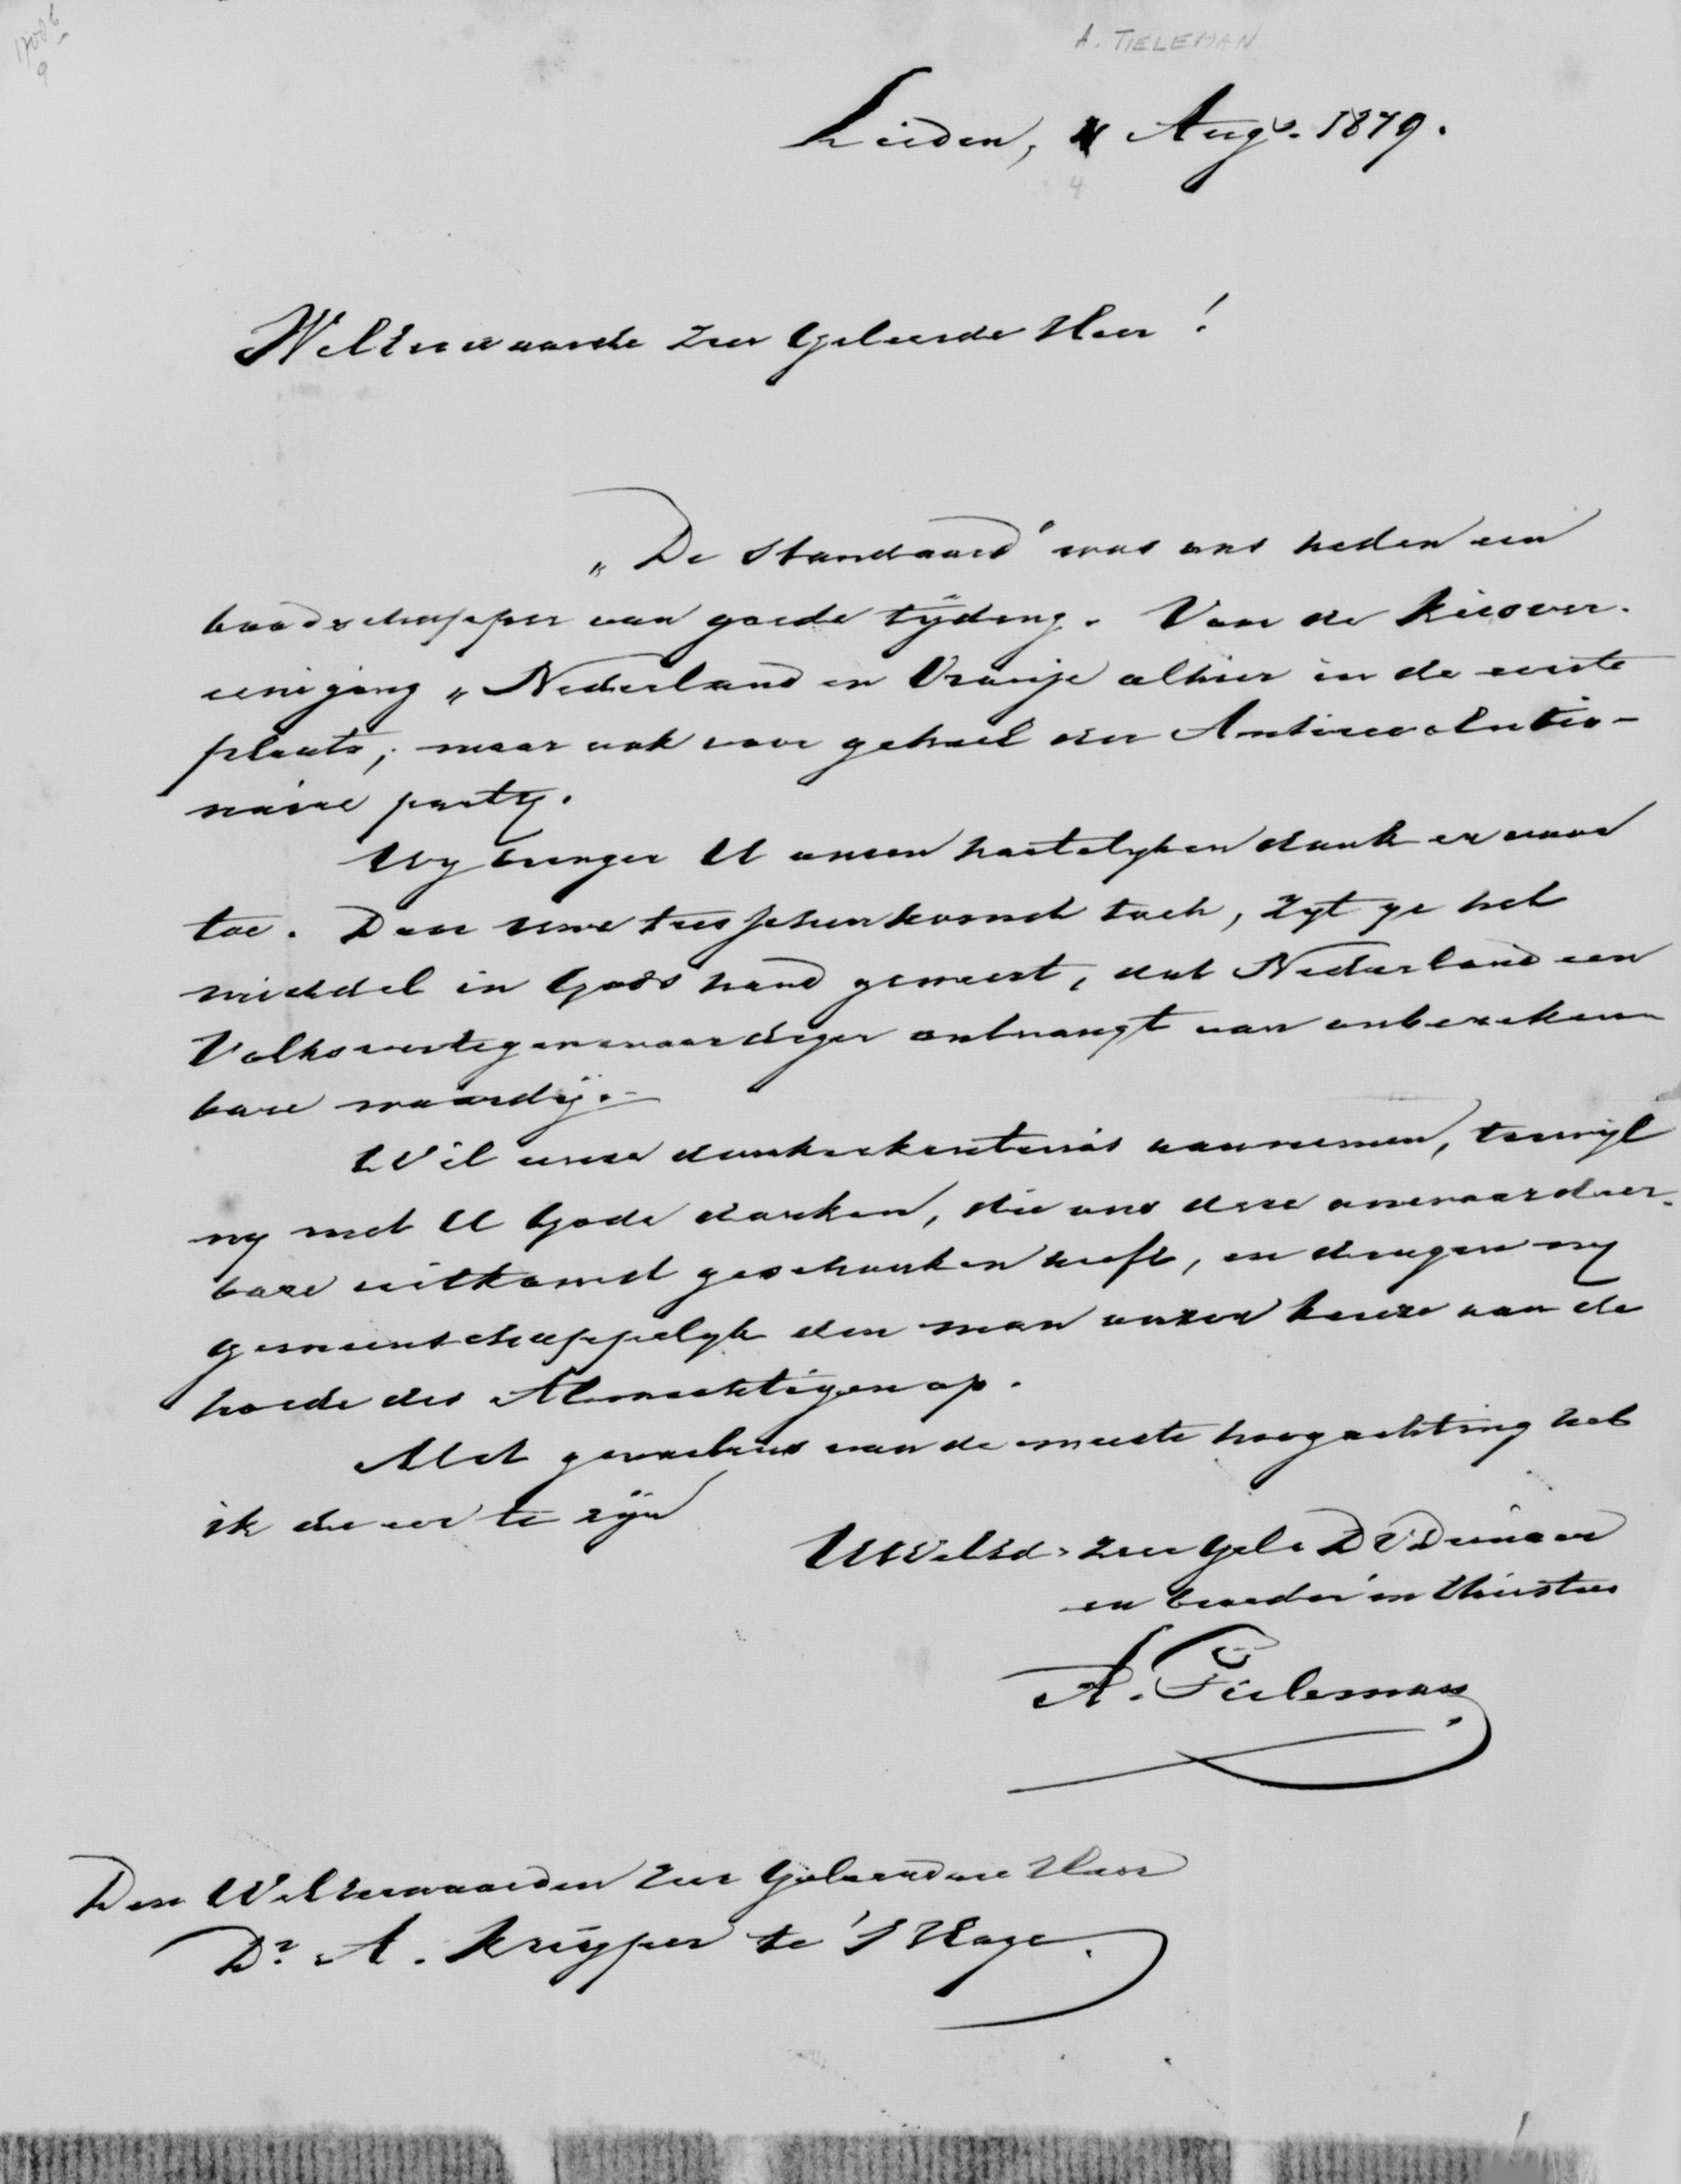 1708b
9
A. TIELEMAN
Leiden, 4 Aug. 1879.
4
Weleerwaarde Zeer Geleerde Heer!
„De Standaard" was ons heden een
boodschapper van goede tijding. Voor de Kiesver-
eeniging „Nederland en Oranje alhier in de eerste
plaats, maar ook voor geheel der Antirevolutio-
naire party.
Wy brengen U onzen hartelyken dank er voor
toe. Door uwe tusschenkomst toch, zyt ge het
middel in Gods hand geweest, dat Nederland een
Volksvertegenwoordiger ontvangt van onbereken
bare waardij.
Wil onze dankerkentenis aannemen, terwyl
wy met U Gode danken, die ons deze onwaardeer-
bare uitkomst geschonken heeft, en dragen wy
gemeenschappelyk den man onzer keuze aan de
hoede des Almachtigen op.
Met gevoelens van de meeste hoogachting heb
ik de eer te zijn
UWelEd. zeer Gel. D V Dienaar
en broeder in Christus
A. Tieleman
Den Weleerwaarden Zeer Geleerden Heer
Dr. A. Kuijper te 's Hage.